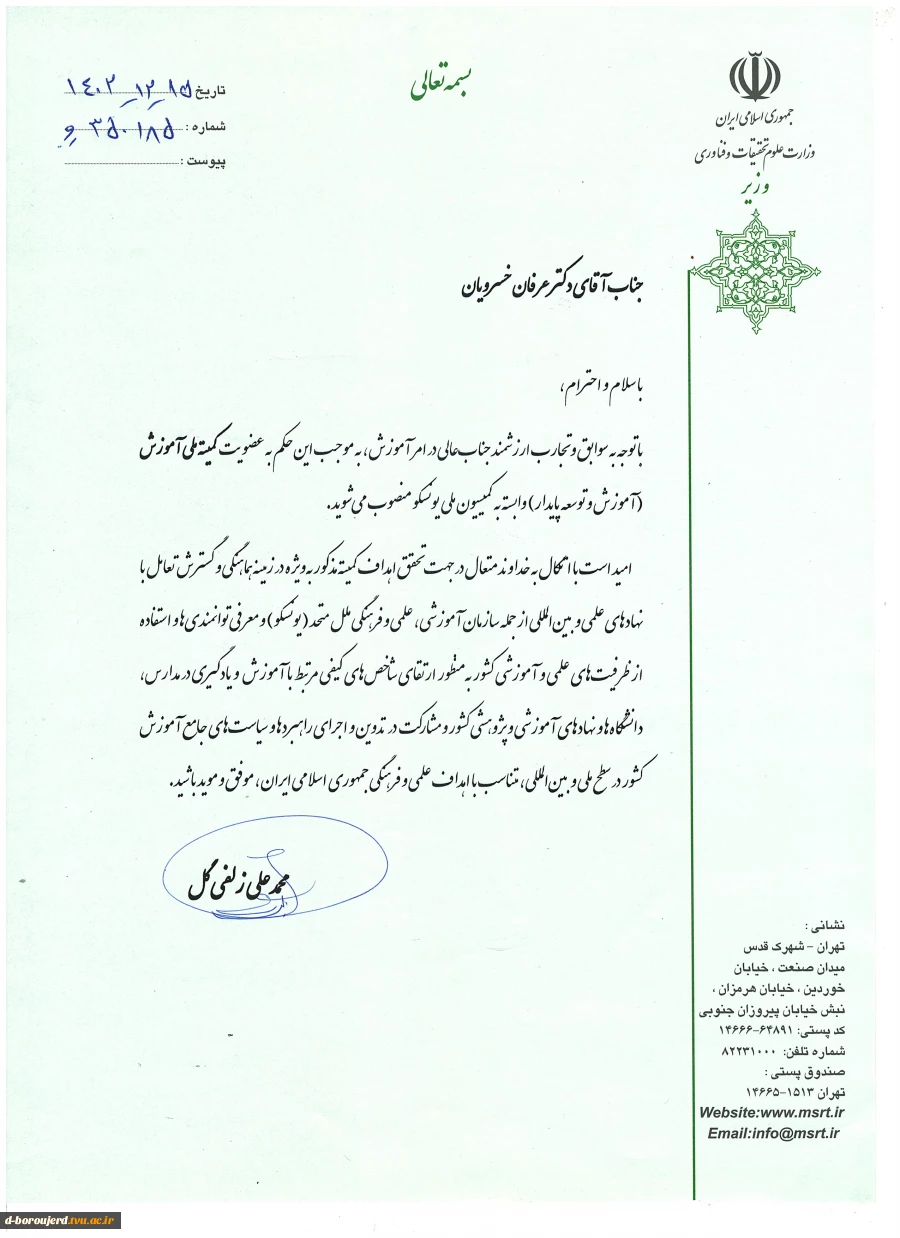 بسمه تعالی
جمهوری اسلامی ایران
وزارت علوم تحقیقات و فناوری
وزیر
تاریخ ۱۴۰۲-۱۲-۱۵
شماره : ۳۵۰۱۸۵ و
پیوست :
جناب آقای دکتر عرفان خسرویان
با سلام و احترام،
با توجه به سوابق و تجارب ارزشمند جناب عالی در امر آموزش، به موجب این حکم به عضویت کمیته ملی آموزش
(آموزش و توسعه پایدار) وابسته به کمیسیون ملی یونسکو منصوب می شوید.
امید است با اتکال به خداوند متعال در جهت تحقق اهداف کمیته مذکور به ویژه در زمینه هماهنگی و گسترش تعامل با
نهادهای علمی و بین المللی از جمله سازمان آموزشی، علمی و فرهنگی ملل متحد (یونسکو) و معرفی توانمندی ها و استفاده
از ظرفیت های علمی و آموزشی کشور به منظور ارتقای شاخص های کیفی مرتبط با آموزش و یادگیری در مدارس،
دانشگاه ها و نهادهای آموزشی و پژوهشی کشور و مشارکت در تدوین و اجرای راهبردها و سیاست های جامع آموزش
کشور در سطح ملی و بین المللی، متناسب با اهداف علمی و فرهنگی جمهوری اسلامی ایران، موفق و موید باشید.
محمد علی زلفی گل
نشانی :
تهران - شهرک قدس
میدان صنعت ، خیابان
خوردین ، خیابان هرمزان ،
نبش خیابان پیروزان جنوبی
کد پستی: ۶۴۸۹۱-۱۴۶۶۶
شماره تلفن: ۸۲۲۳۱۰۰۰
صندوق پستی :
تهران ۱۵۱۳-۱۴۶۶۵
Website:www.msrt.ir
Email:info@msrt.ir
d-boroujerd.tvu.ac.ir